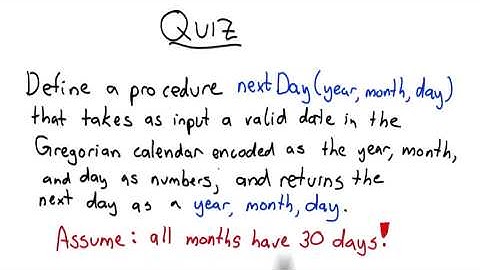 QUIZ
Define a procedure nextDay(year, month, day)
that takes as input a valid date in the
Gregorian calendar encoded as the year, month,
and day as numbers, and returns the
next day as a year, month, day.
Assume: all months have 30 days!